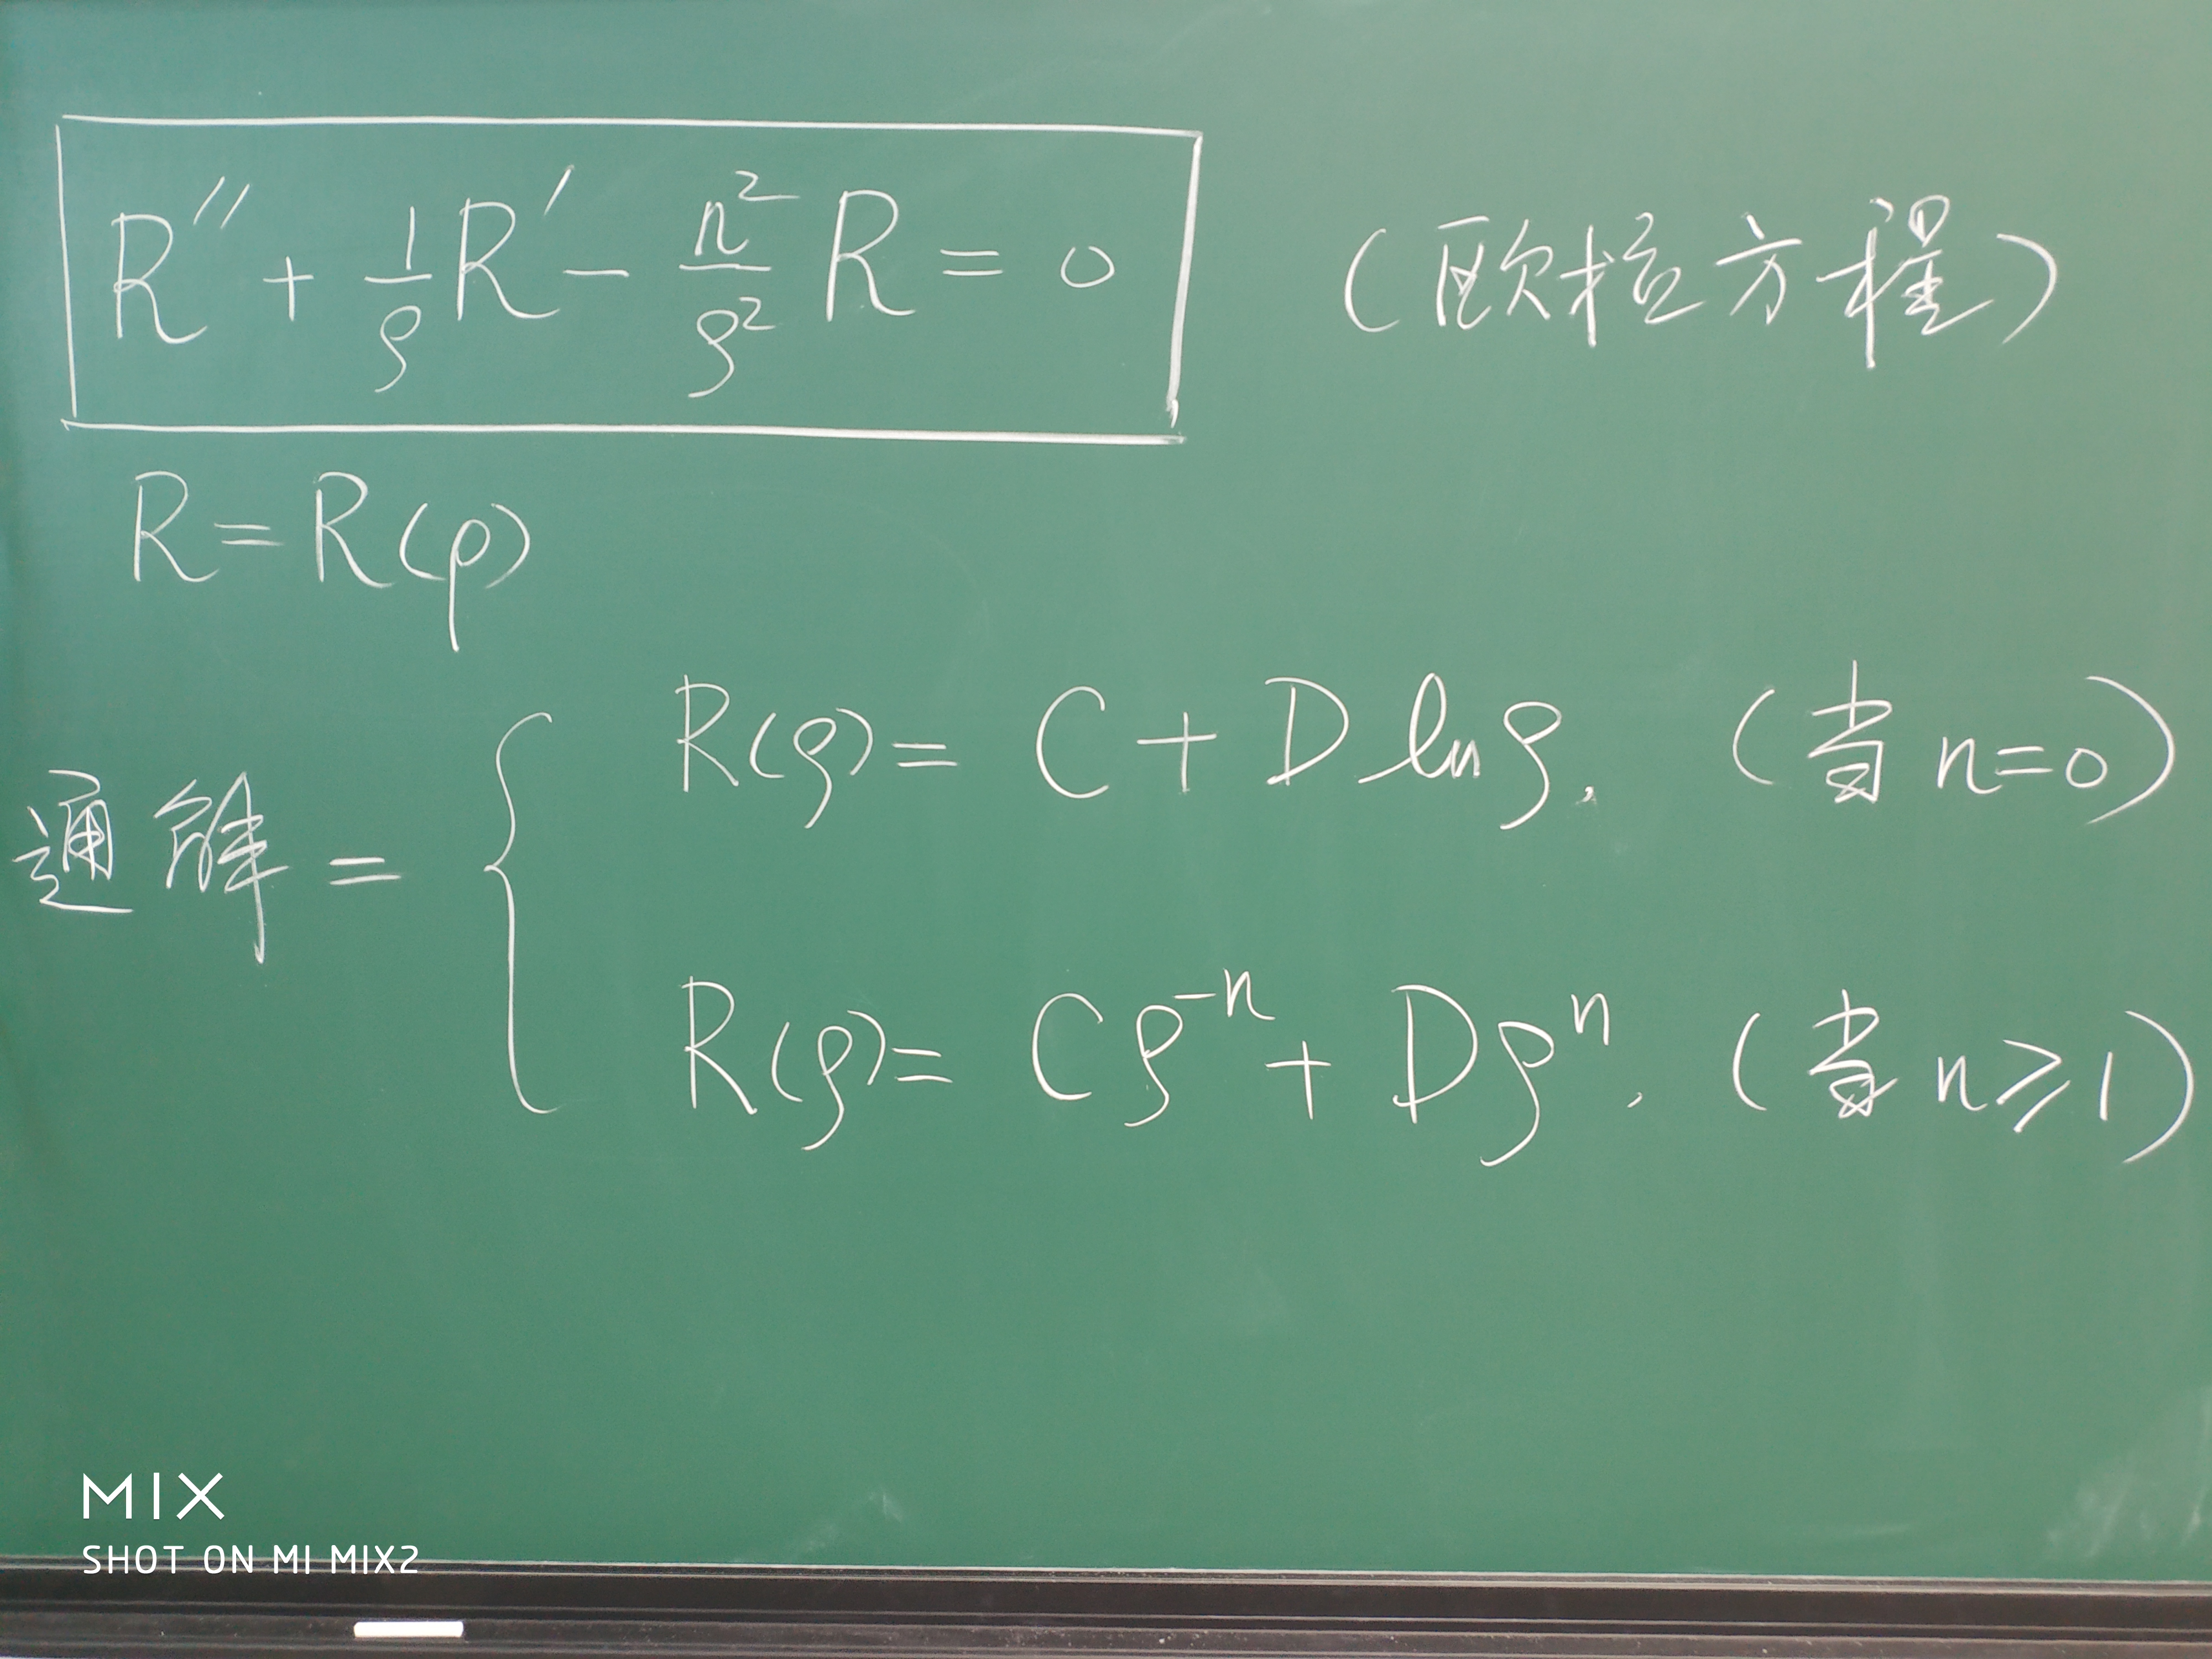 R″ + 1/ρ R′ − n²/ρ² R = 0 (欧拉方程)
R = R(ρ)
通解 = { R(ρ) = C + D ln ρ, (当 n=0)
R(ρ) = Cρ⁻ⁿ + Dρⁿ, (当 n⩾1)
MIX
SHOT ON MI MIX2